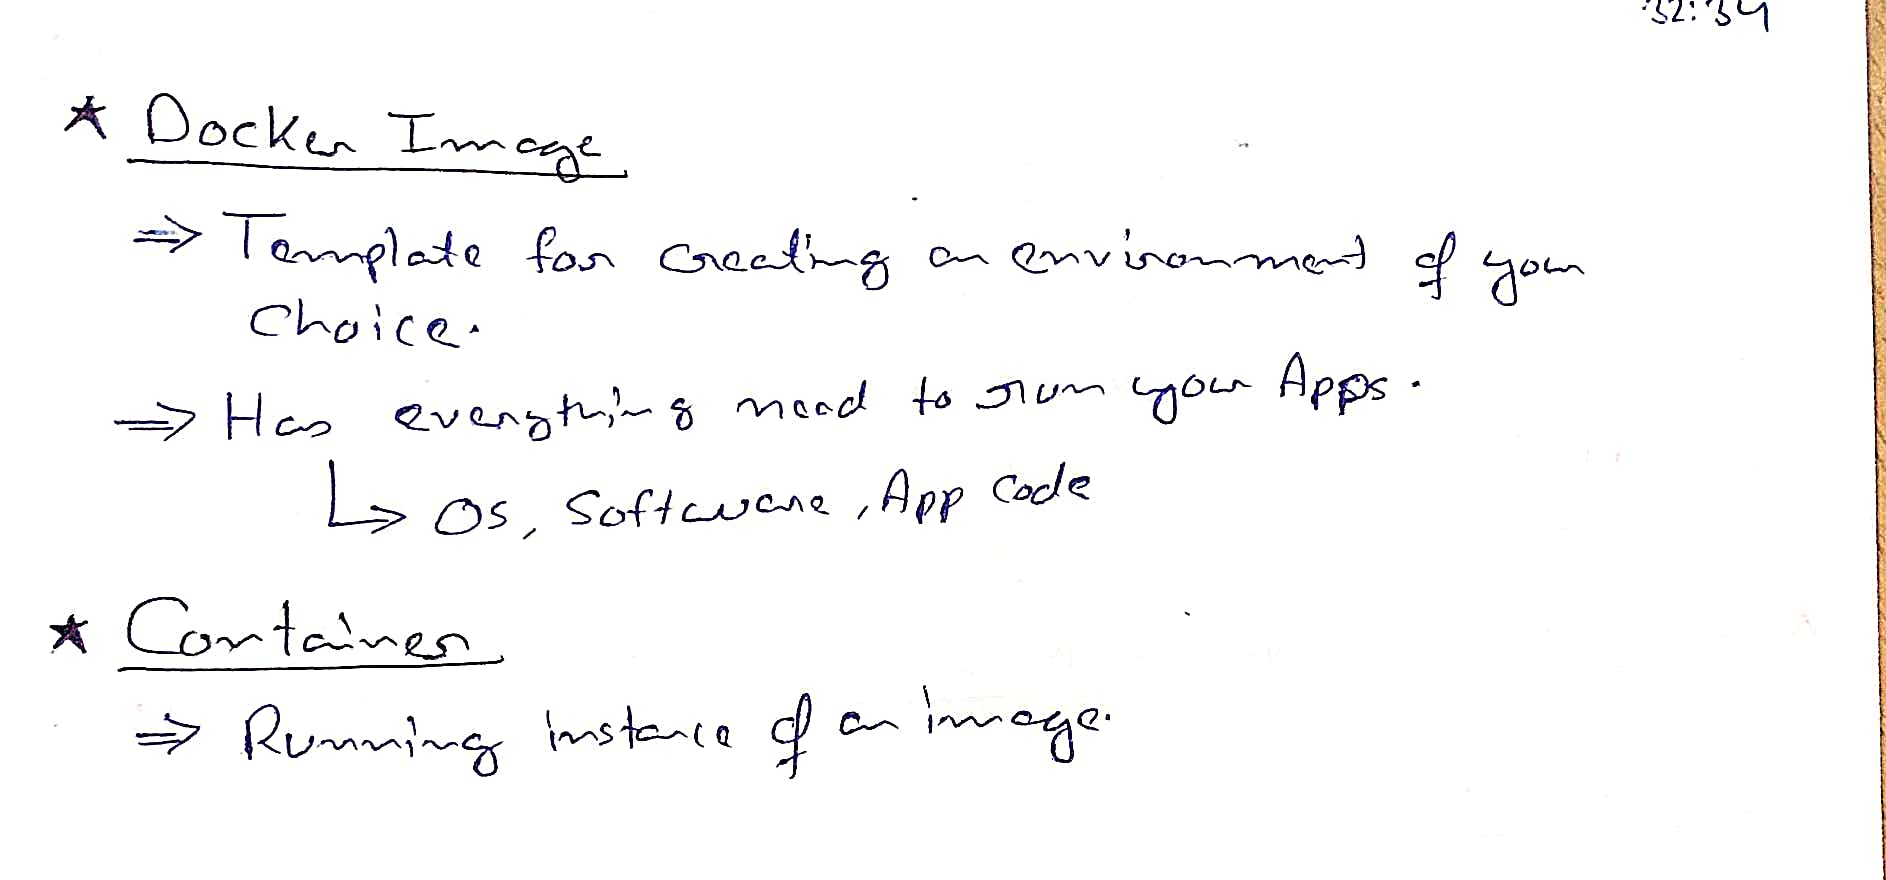 32:34
★ Docker Image
⇒ Template for creating an environment of your
choice.
⇒ Has everything need to run your Apps.
↳ OS, Software, App Code
★ Container
⇒ Running instance of an image.